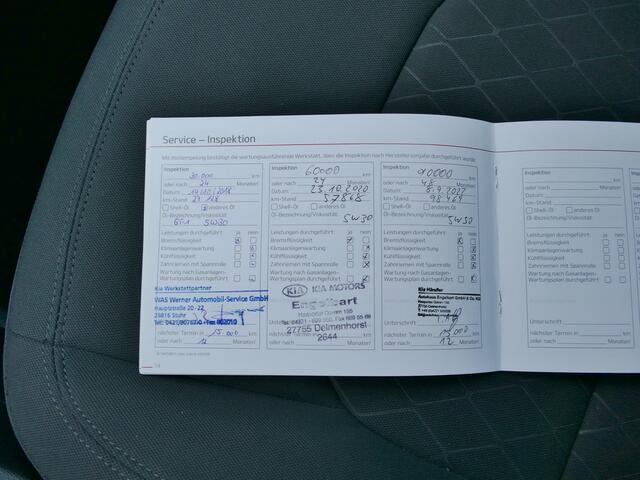 Service – Inspektion
Mit Abstempelung bestätigt die wartungsausführende Werkstatt, dass die Inspektion nach Herstellervorgabe durchgeführt wurde
Inspektion
30.000 km
oder nach 24 Monaten
Datum
km-Stand 29 128
Shell-Öl anderes Öl
Öl-Bezeichnung/Viskosität
5W30
Leistungen durchgeführt: ja nein
Bremsflüssigkeit
Klimaanlagenwartung
Kühlflüssigkeit
Zahnriemen mit Spannrolle
Wartung nach Gasanlagen-
Wartungsplan durchgeführt
Kia Werkstattpartner
WAS Werner Automobil-Service GmbH
Hauptstraße 20 - 22
28816 Stuhr
nächster Termin in 15.000 km
oder nach 12 Monaten
14
Inspektion
60000 km
oder nach 24 Monaten
Datum 23.10.2020
km-Stand 57868
Shell-Öl anderes Öl
Öl-Bezeichnung/Viskosität
5W30
Leistungen durchgeführt: ja nein
Bremsflüssigkeit
Klimaanlagenwartung
Kühlflüssigkeit
Zahnriemen mit Spannrolle
Wartung nach Gasanlagen-
Wartungsplan durchgeführt
KIA KIA MOTORS
Engelbart
27755 Delmenhorst
2644
Unterschrift
nächster Termin in km
oder nach Monaten
Inspektion
90000 km
oder nach 48 Monaten
Datum
km-Stand 98464
Shell-Öl anderes Öl
Öl-Bezeichnung/Viskosität
5W30
Leistungen durchgeführt: ja nein
Bremsflüssigkeit
Klimaanlagenwartung
Kühlflüssigkeit
Zahnriemen mit Spannrolle
Wartung nach Gasanlagen-
Wartungsplan durchgeführt
Kia Händler
Autohaus Engelbart GmbH & Co. KG
27755 Delmenhorst
Unterschrift
nächster Termin in 15.000 km
oder nach 12 Monaten
Inspektion
oder nach
Datum
km-Stand
Shell-Öl anderes Öl
Öl-Bezeichnung/Viskosität
Leistungen durchgeführt:
Bremsflüssigkeit
Klimaanlagenwartung
Kühlflüssigkeit
Zahnriemen mit Spannrolle
Wartung nach Gasanlagen-
Wartungsplan durchgeführt
Unterschrift
nächster Termin in
oder nach